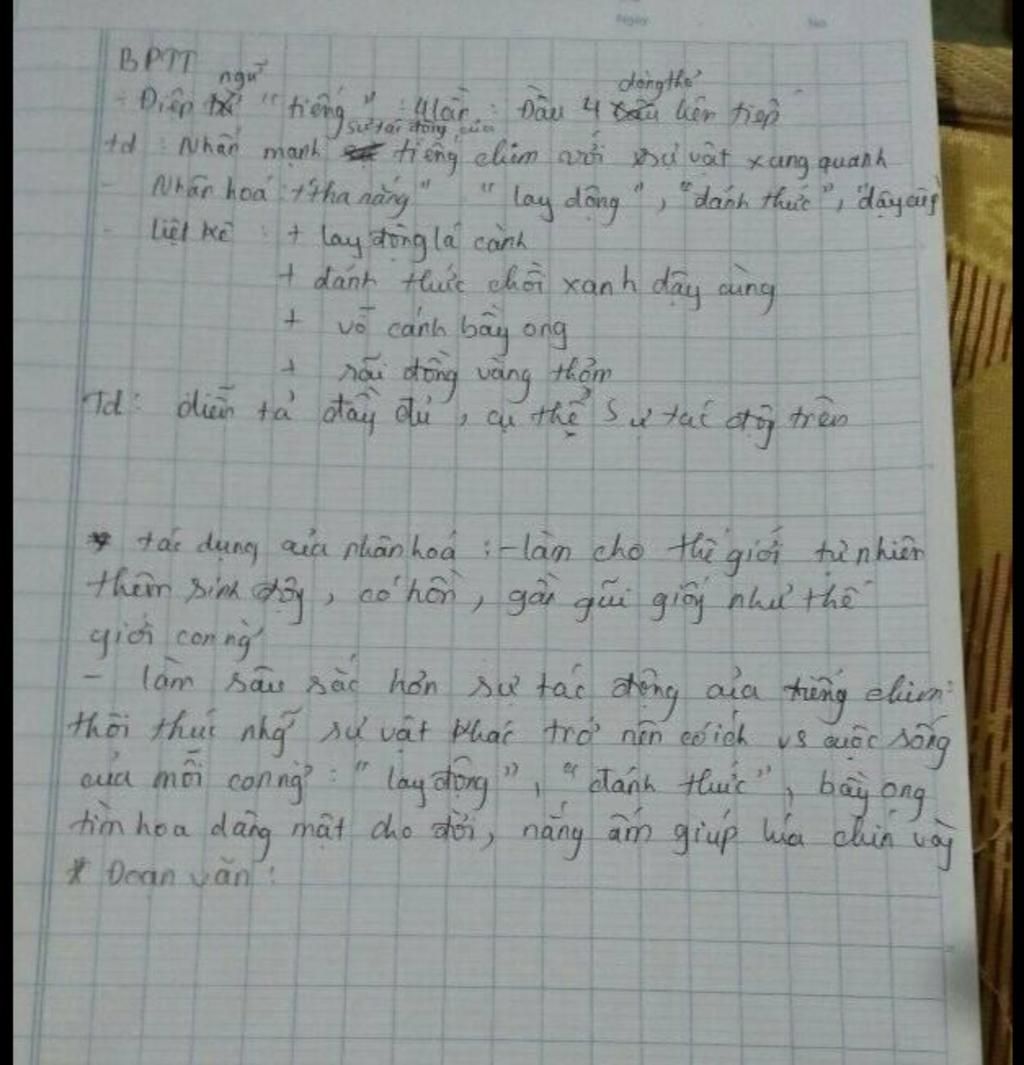 Ngày No
BPTT
- Điệp ngữ "tiếng" : 4 lần : Đầu 4 dòng thơ liên tiếp
td : Nhấn mạnh sự tác động của tiếng chim với sự vật xung quanh
- Nhân hoá : "tha nắng" "lay động", "đánh thức", "dậy cùng"
- Liệt kê : + lay động lá cành
+ đánh thức chồi xanh dậy cùng
+ vỗ cánh bầy ong
+ rải đồng vàng thơm
Td : diễn tả đầy đủ, cụ thể sự tác độg trên
* tác dụng của nhân hoá : - làm cho thế giới tự nhiên
thêm sinh độg, có hồn, gần gũi giốg như thế
giới con ng'
- làm sâu sắc hơn sự tác động của tiếng chim:
thôi thúc nhg~ sự vật khác trở nên có ích vs cuộc sống
của mỗi con ng' : "lay động", "đánh thức", bầy ong
tìm hoa dâng mật cho đời, nắng ấm giúp lúa chín vàg
* Đoạn văn :